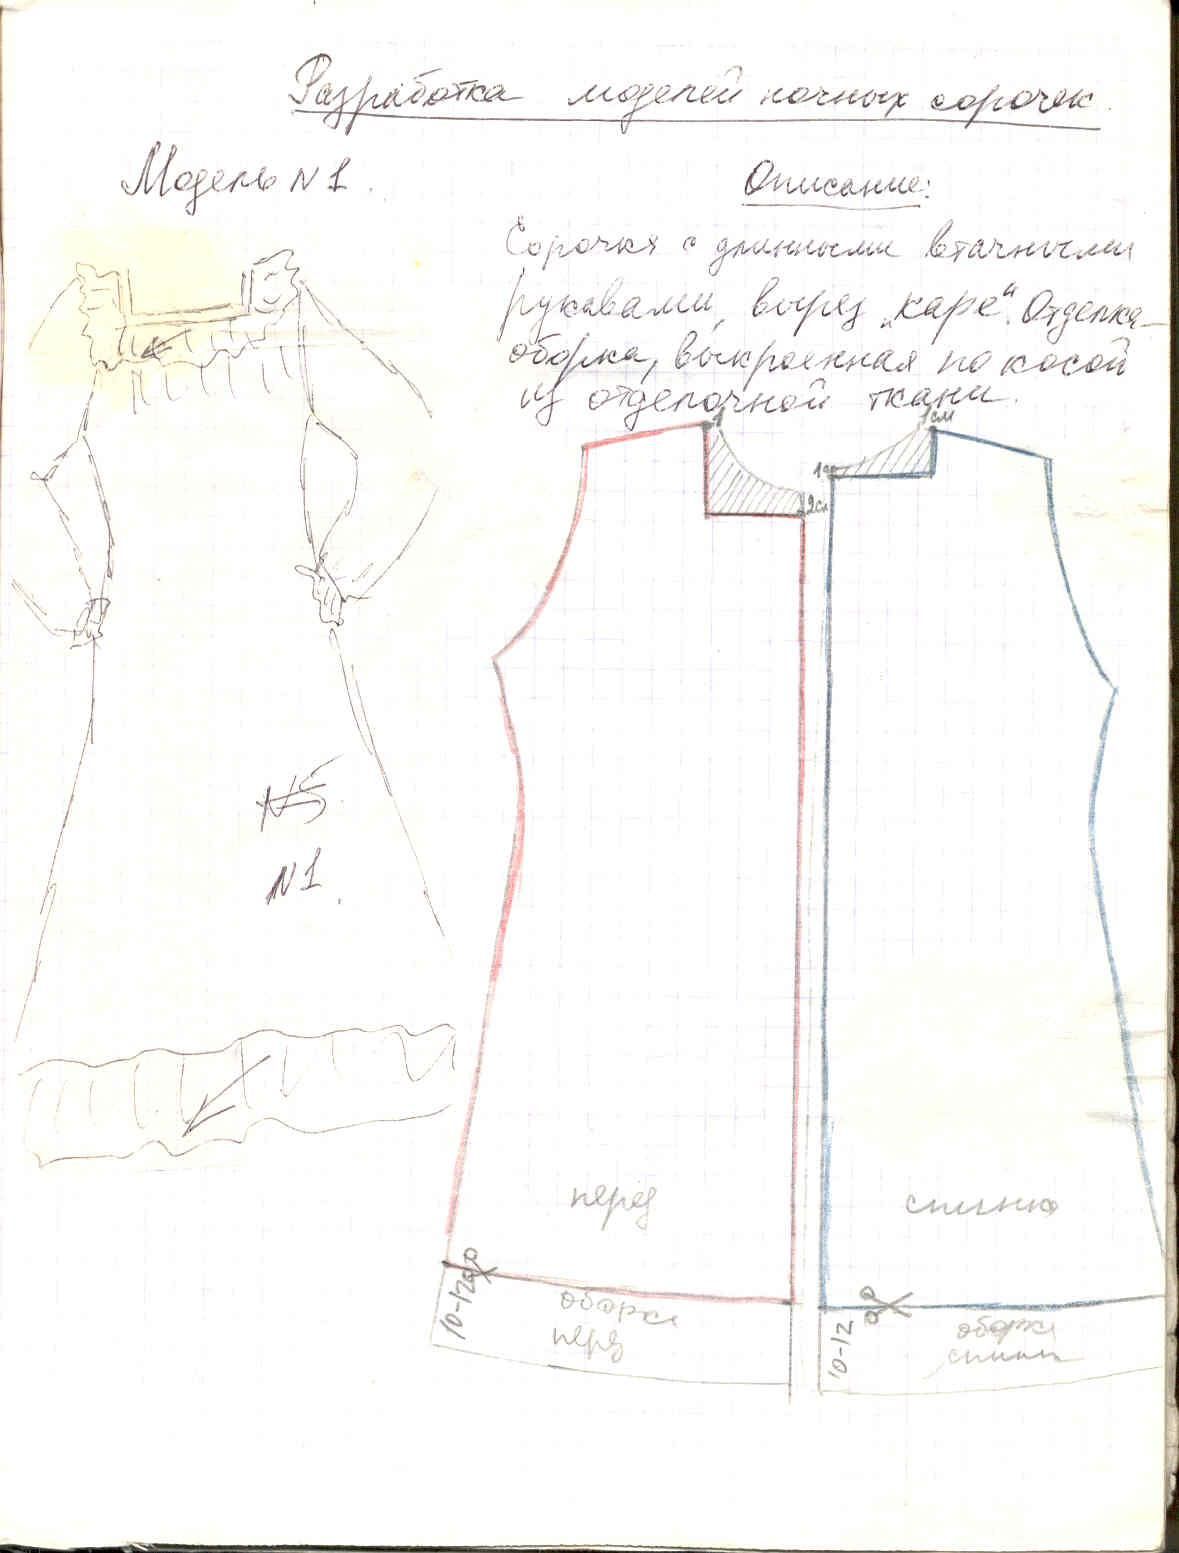 Разработка моделей ночных сорочек.
Модель N1.
Описание:
Сорочка с длинными втачными
рукавами, вырез „каре“. Отделка-
оборка, выкроенная по косой
из отделочной ткани.
1
1см
1
2см
N5
N1.
перед
спинка
10-12
оборка
перед
10-12
оборка
спинки